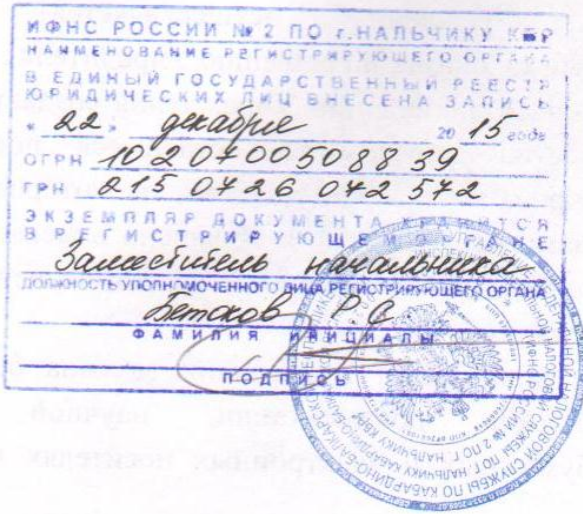 ИФНС РОССИИ № 2 ПО г.НАЛЬЧИКУ КБР
НАИМЕНОВАНИЕ РЕГИСТРИРУЮЩЕГО ОРГАНА
В ЕДИНЫЙ ГОСУДАРСТВЕННЫЙ РЕЕСТР
ЮРИДИЧЕСКИХ ЛИЦ ВНЕСЕНА ЗАПИСЬ
« 22 » декабря 20 15 года
ОГРН 1020700508839
ГРН 2150726042572
ЭКЗЕМПЛЯР ДОКУМЕНТА ХРАНИТСЯ
В РЕГИСТРИРУЮЩЕМ ОРГАНЕ
Заместитель начальника
ДОЛЖНОСТЬ УПОЛНОМОЧЕННОГО ЛИЦА РЕГИСТРИРУЮЩЕГО ОРГАНА
Р.С
ФАМИЛИЯ ИНИЦИАЛЫ
ПОДПИСЬ
НАЛОГОВОЙ СЛУЖБЫ ПО КАБАРДИНО-БАЛКАРСКОЙ
РОССИИ № 2 ПО Г. НАЛЬЧИКУ